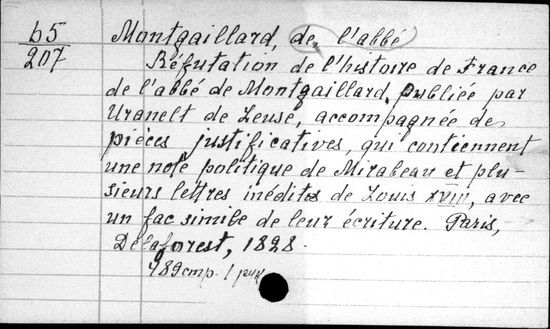 b5
207
Montgaillard, de, l'abbé
Réfutation de l'histoire de France
de l'abbé de Montgaillard, publiée par
Uranelt de Leuse, accompagnée de
pièces justificatives, qui contiennent
une note politique de Mirabeau et plu-
sieurs lettres inédites de Louis XVIII, avec
un fac simile de leur écriture. Paris,
Delaforest, 1828.
489 стр. 1 рук